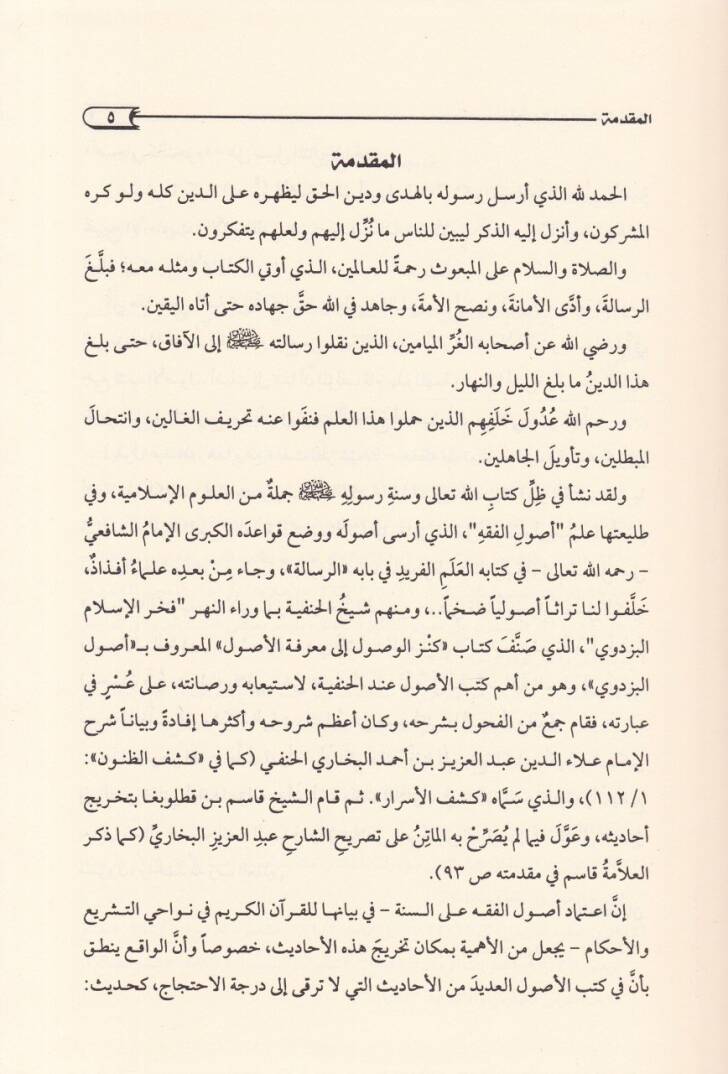 المقدمة
٥
المقدمة
الحمد لله الذي أرسل رسوله بالهدى ودين الحق ليظهره على الدين كله ولو كره
المشركون، وأنزل إليه الذكر ليبين للناس ما نُزِّل إليهم ولعلهم يتفكرون.
والصلاة والسلام على المبعوث رحمةً للعالمين، الذي أوتي الكتاب ومثله معه؛ فبلَّغَ
الرسالةَ، وأدَّى الأمانةَ، ونصح الأمةَ، وجاهد في الله حقَّ جهاده حتى أتاه اليقين.
ورضي الله عن أصحابه الغُرِّ الميامين، الذين نقلوا رسالته ﷺ إلى الآفاق، حتى بلغ
هذا الدينُ ما بلغ الليل والنهار.
ورحم الله عُدُولَ خَلَفِهِم الذين حملوا هذا العلم فنفَوا عنه تحريف الغالين، وانتحالَ
المبطلين، وتأويلَ الجاهلين.
ولقد نشأ في ظِلِّ كتابِ الله تعالى وسنةِ رسولِهِ ﷺ جملةٌ من العلوم الإسلامية، وفي
طليعتها علمُ "أصولِ الفقهِ"، الذي أرسى أصولَه ووضع قواعدَه الكبرى الإمامُ الشافعيُّ
– رحمه الله تعالى – في كتابه العَلَمِ الفريدِ في بابه «الرسالة»، وجاء مِنْ بعدِه علماءُ أفذاذٌ،
خَلَّفوا لنا تراثاً أصولياً ضخماً..، ومنهم شيخُ الحنفية بما وراء النهر "فخر الإسلام
البزدوي"، الذي صَنَّفَ كتاب «كنْز الوصول إلى معرفة الأصول» المعروف بـ«أصول
البزدوي»، وهو من أهم كتب الأصول عند الحنفية، لاستيعابه ورصانته، على عُسْرٍ في
عبارته، فقام جمعٌ من الفحول بشرحه، وكان أعظم شروحه وأكثرها إفادةً وبياناً شرح
الإمام علاء الدين عبد العزيز بن أحمد البخاري الحنفي (كما في «كشف الظنون»:
١/ ١١٢)، والذي سَمَّاه «كشف الأسرار». ثم قام الشيخ قاسم بن قطلوبغا بتخريج
أحاديثه، وعَوَّلَ فيما لم يُصَرِّحْ به الماتِنُ على تصريحِ الشارحِ عبدِ العزيزِ البخاريِّ (كما ذكر
العلاَّمةُ قاسم في مقدمته ص ٩٣).
إنَّ اعتماد أصول الفقه على السنة – في بيانها للقرآن الكريم في نواحي التشريع
والأحكام – يجعل من الأهمية بمكان تخريجَ هذه الأحاديث، خصوصاً وأنَّ الواقع ينطق
بأنَّ في كتب الأصول العديدَ من الأحاديث التي لا ترقى إلى درجة الاحتجاج، كحديث: